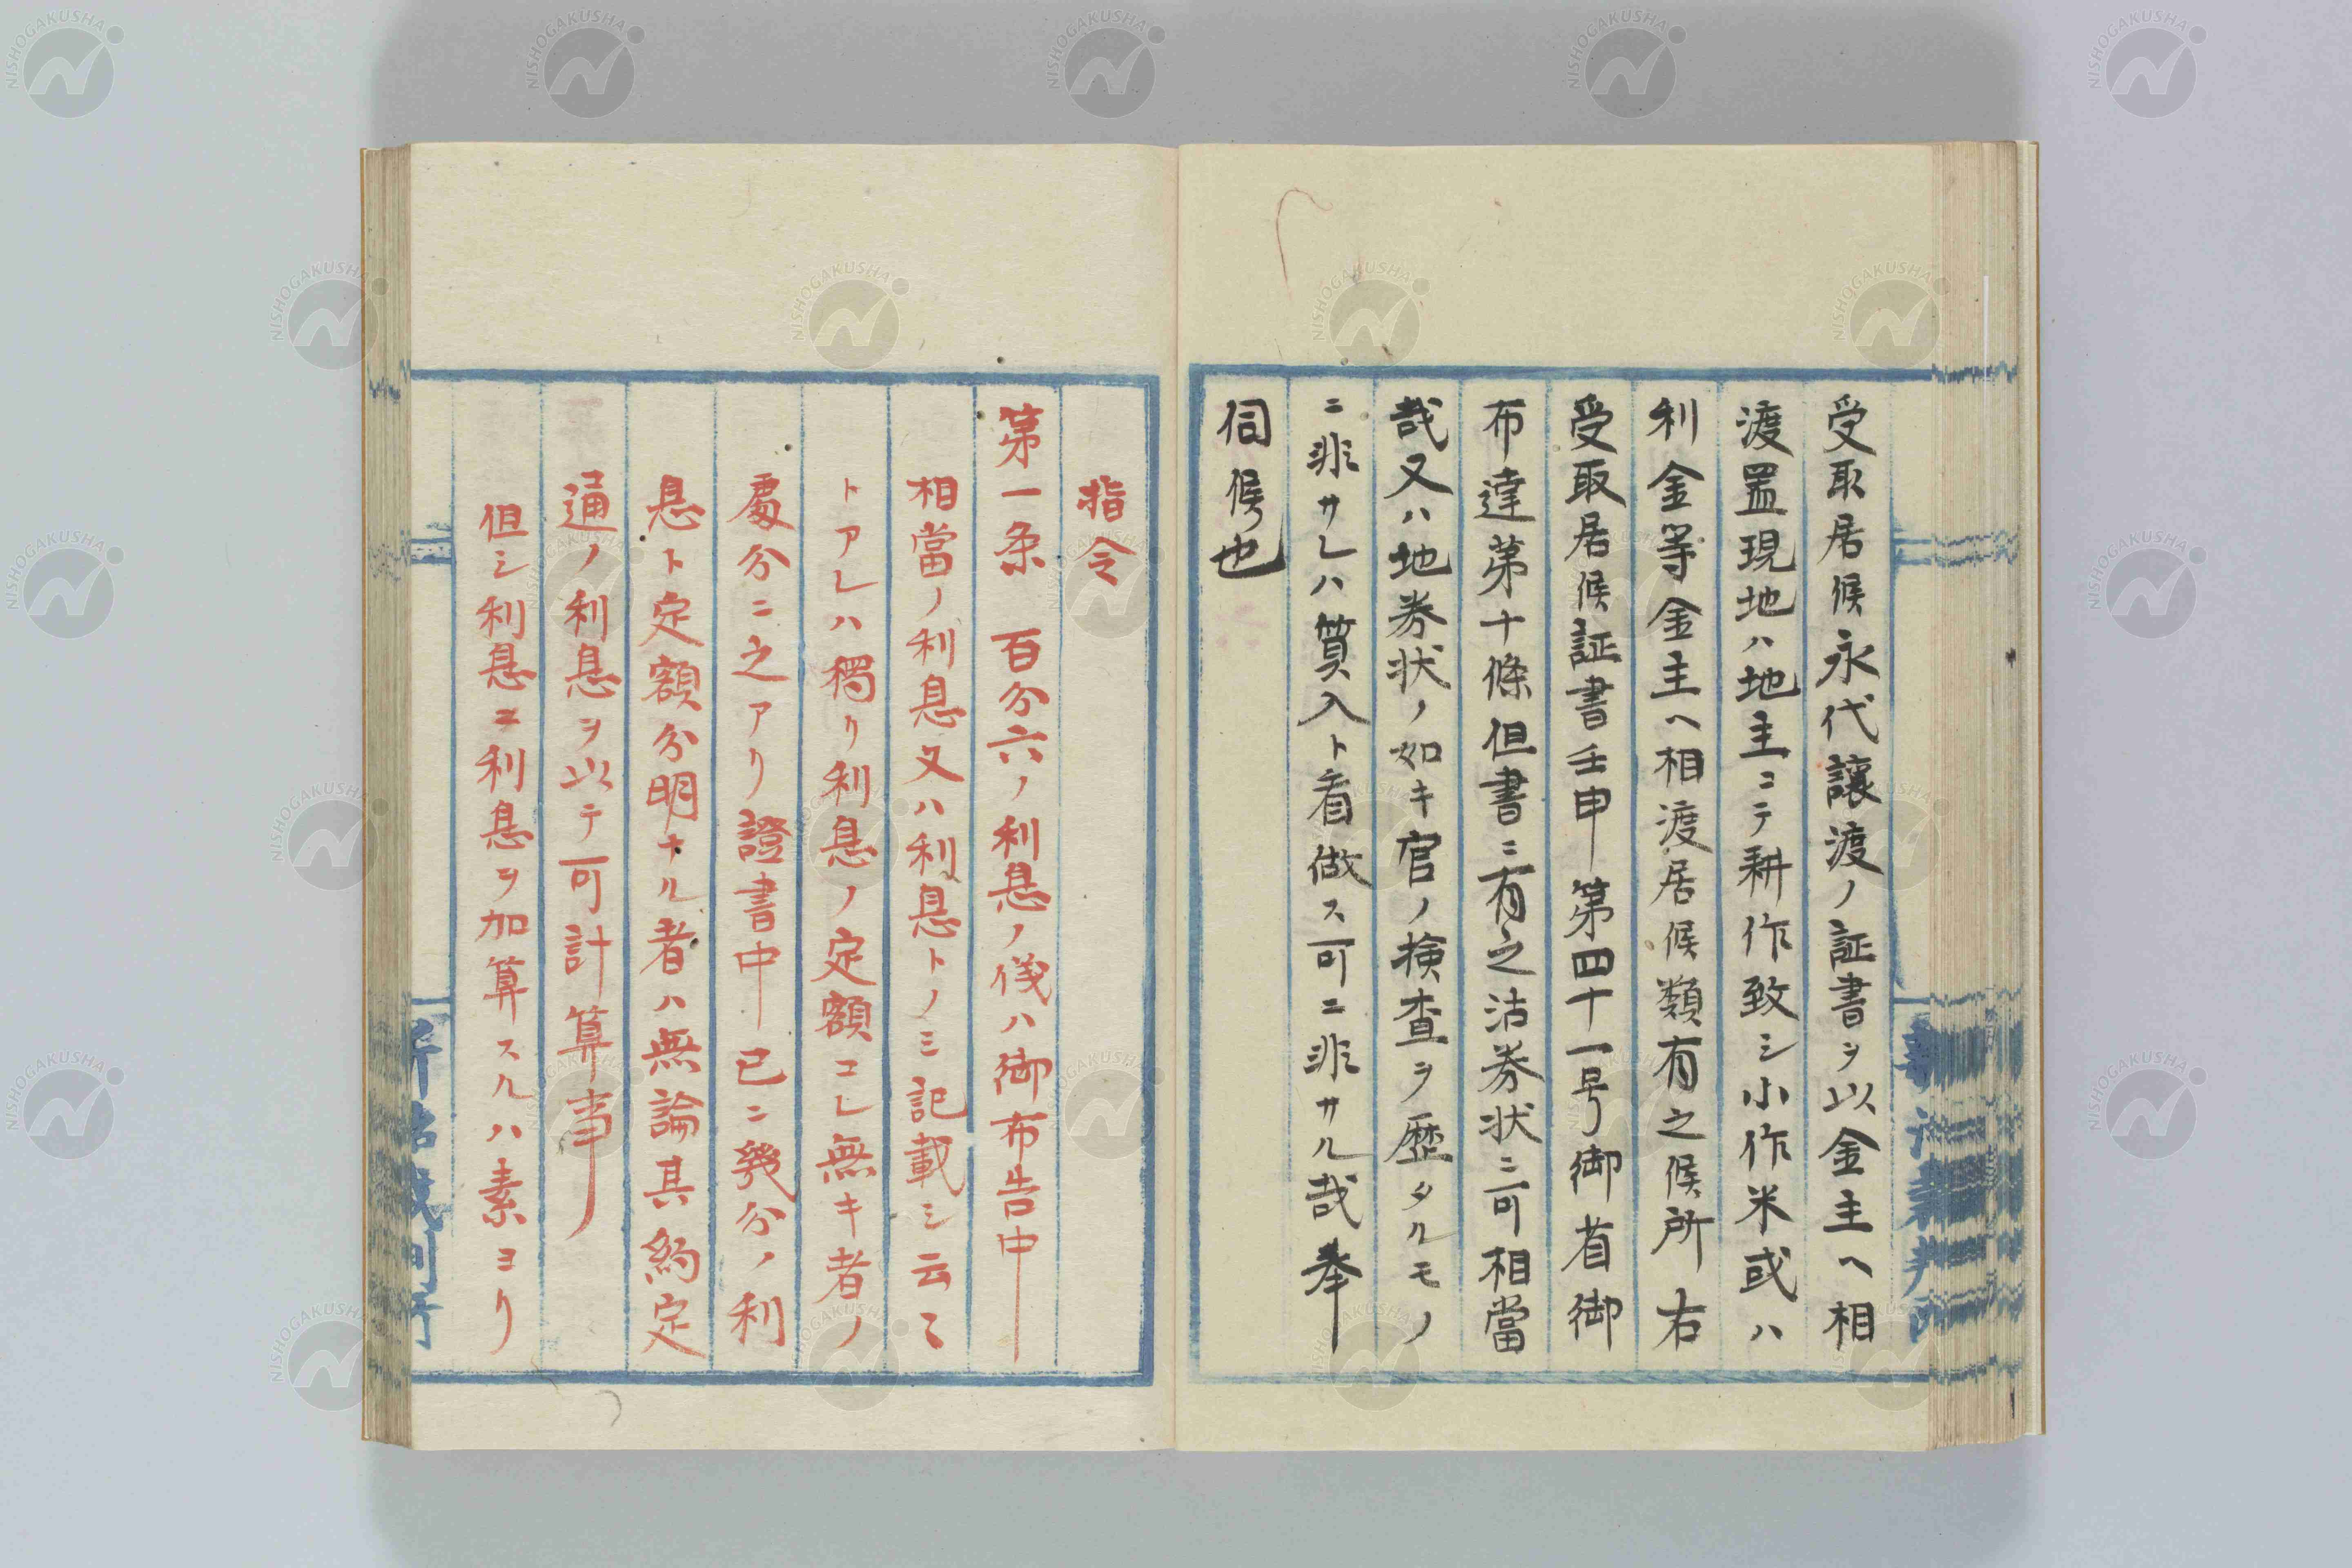 受取居候永代讓渡ノ証書ヲ以金主ヘ相
渡置現地ハ地主ニテ耕作致シ小作米或ハ
利金等金主ヘ相渡居候類有之候所右
受取居候証書壬申第四十一号御省御
布達第十條但書ニ有之沽券状ニ可相當
哉又ハ地券状ノ如キ官ノ検査ヲ歴タルモノ
ニ非サレハ質入ト看做ス可ニ非サル哉奉
伺候也
指令
第一条 百分六ノ利息ノ儀ハ御布告中
相當ノ利息又ハ利息トノミ記載シ云々
トアレハ獨リ利息ノ定額コレ無キ者ノ
處分ニ之アリ證書中已ニ幾分ノ利
息ト定額分明ナル者ハ無論其約定
通ノ利息ヲ以テ可計算事
但シ利息ニ利息ヲ加算スルハ素ヨリ
NISHOGAKUSHA